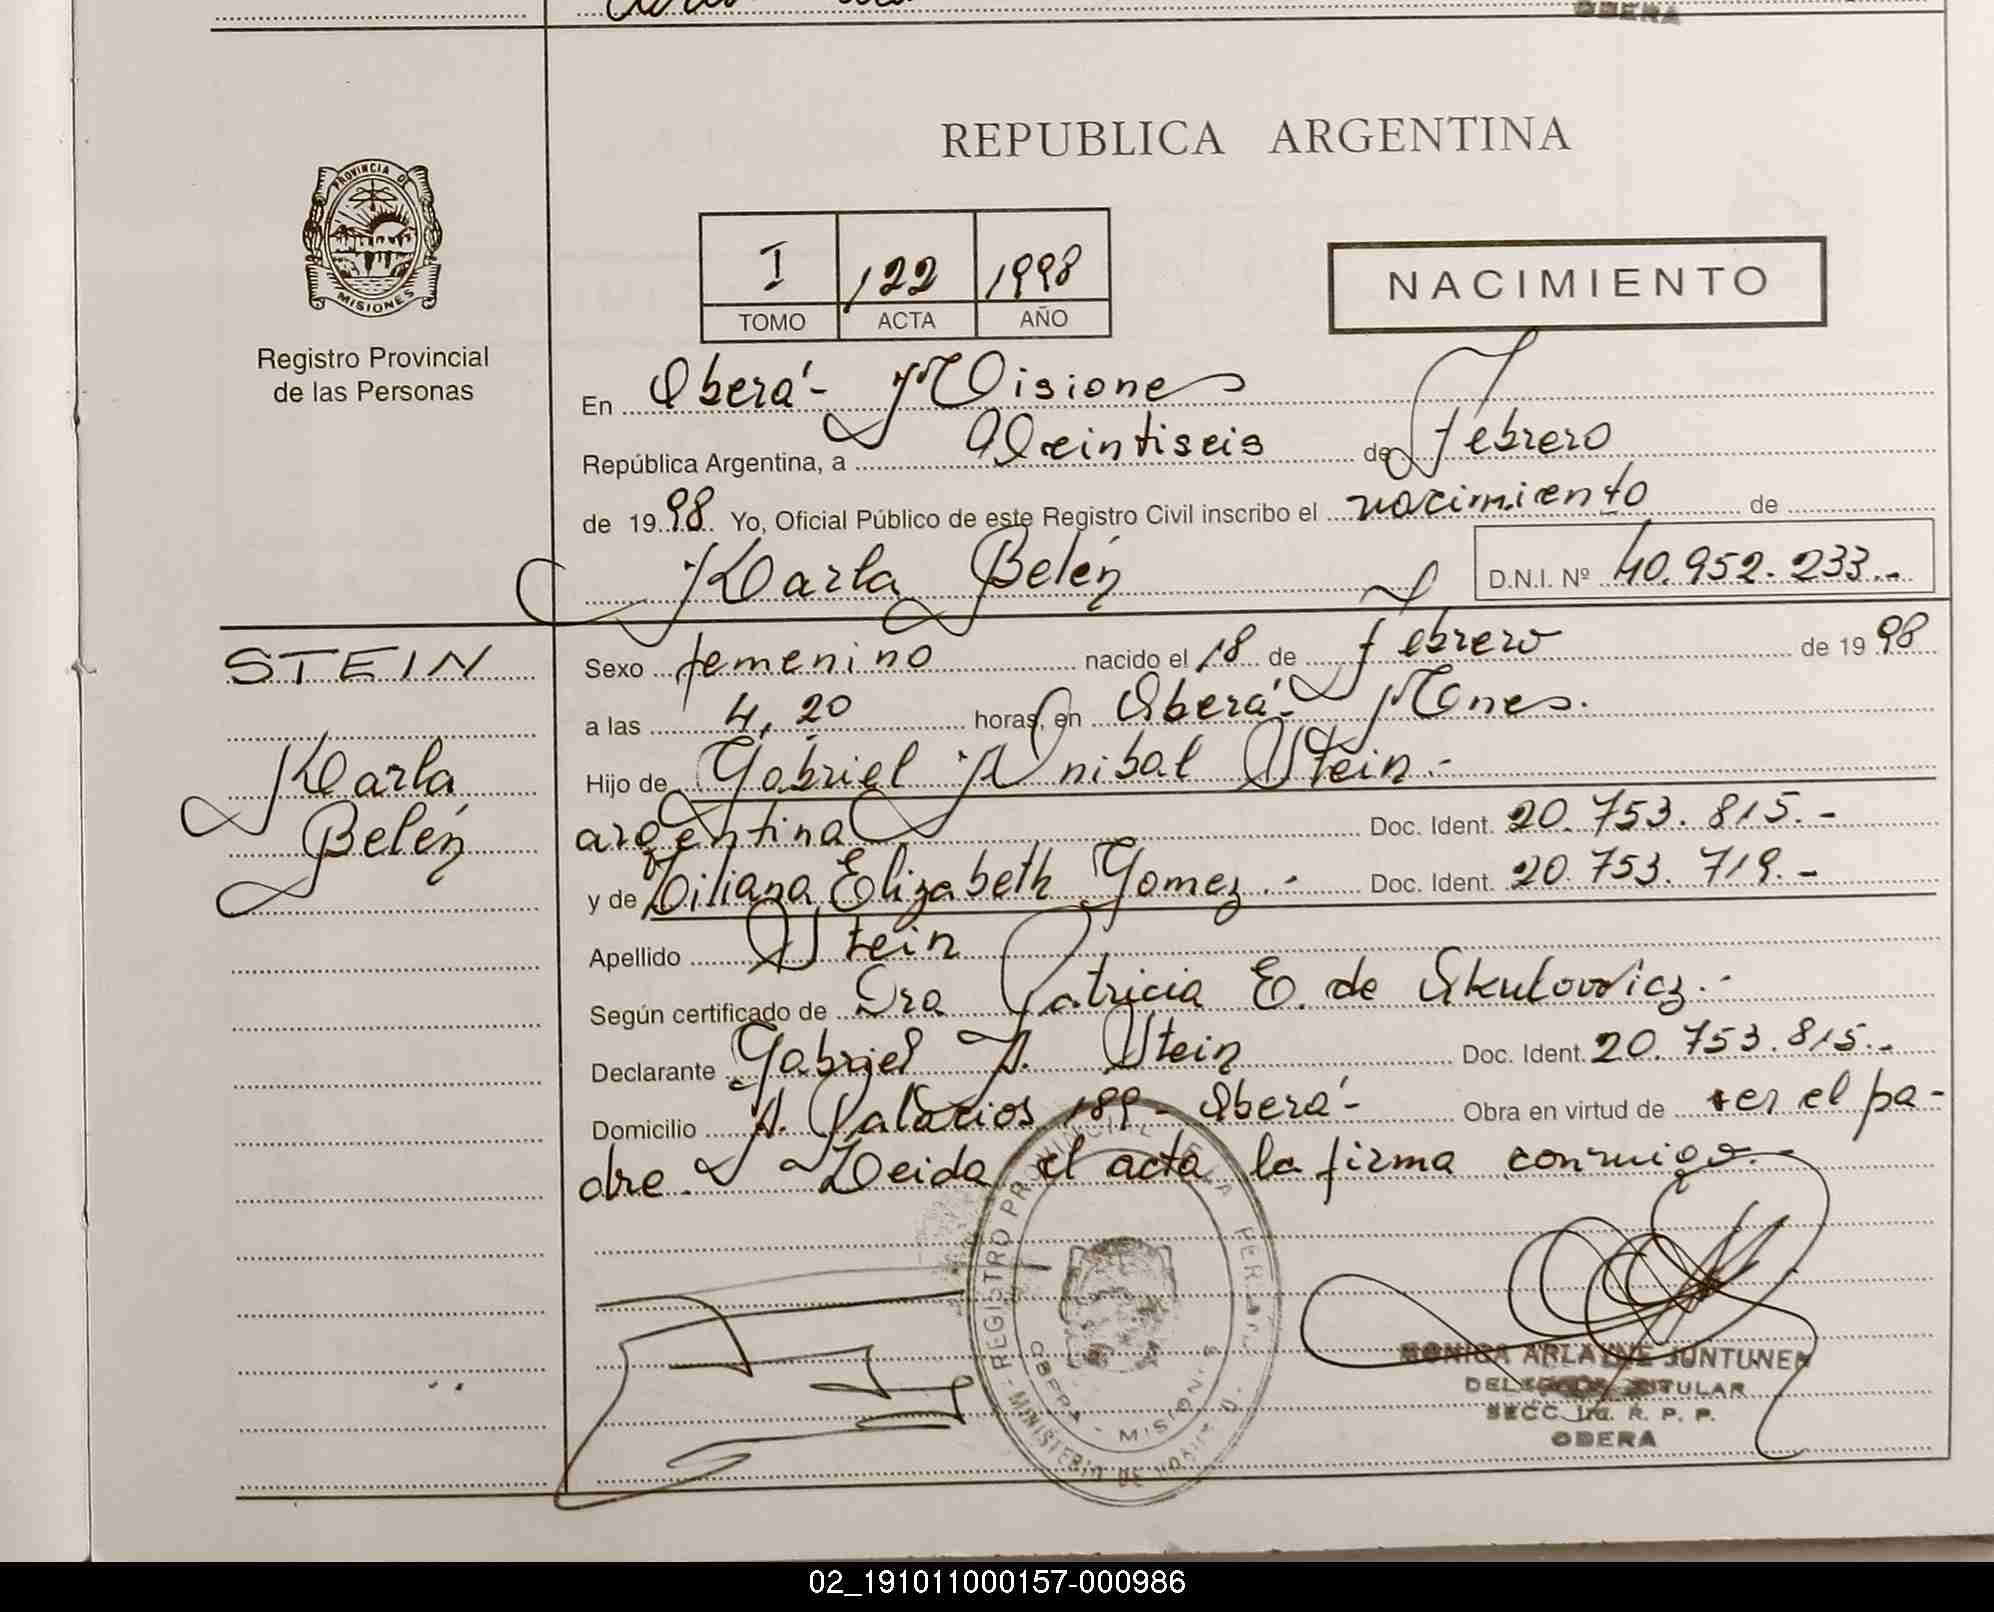 OBERA
REPUBLICA ARGENTINA
PROVINCIA DE
MISIONES
Registro Provincial
de las Personas
I 122 1998
TOMO ACTA AÑO
NACIMIENTO
En Oberá - Misiones
República Argentina, a Veintiseis de febrero
de 1998 Yo, Oficial Público de este Registro Civil inscribo el nacimiento de
Karla Belén D.N.I. Nº 40.952.233.-
STEIN
Karla
Belén
Sexo femenino nacido el 18 de febrero de 1998
a las 4,20 horas, en Oberá - Mnes.
Hijo de Gabriel Anibal Stein.-
argentina Doc. Ident. 20.753.815.-
y de Viliana Elizabeth Gomez.- Doc. Ident. 20.753.719.-
Apellido Stein
Según certificado de Dra Patricia E. de Skulovvicz.-
Declarante Gabriel A. Stein Doc. Ident. 20.753.815.-
Domicilio A. Palacios 189 - Oberá - Obra en virtud de ser el pa-
dre. Leida el acta la firma conmigo.-
REGISTRO PROVINCIAL DE LA PERSO
MINISTERIO DE
OBERA - MISIONES
MONICA ARLAINE JUNTUNEN
DELEGADA TITULAR
SECC. 1ra. R. P. P.
OBERA
02_191011000157-000986